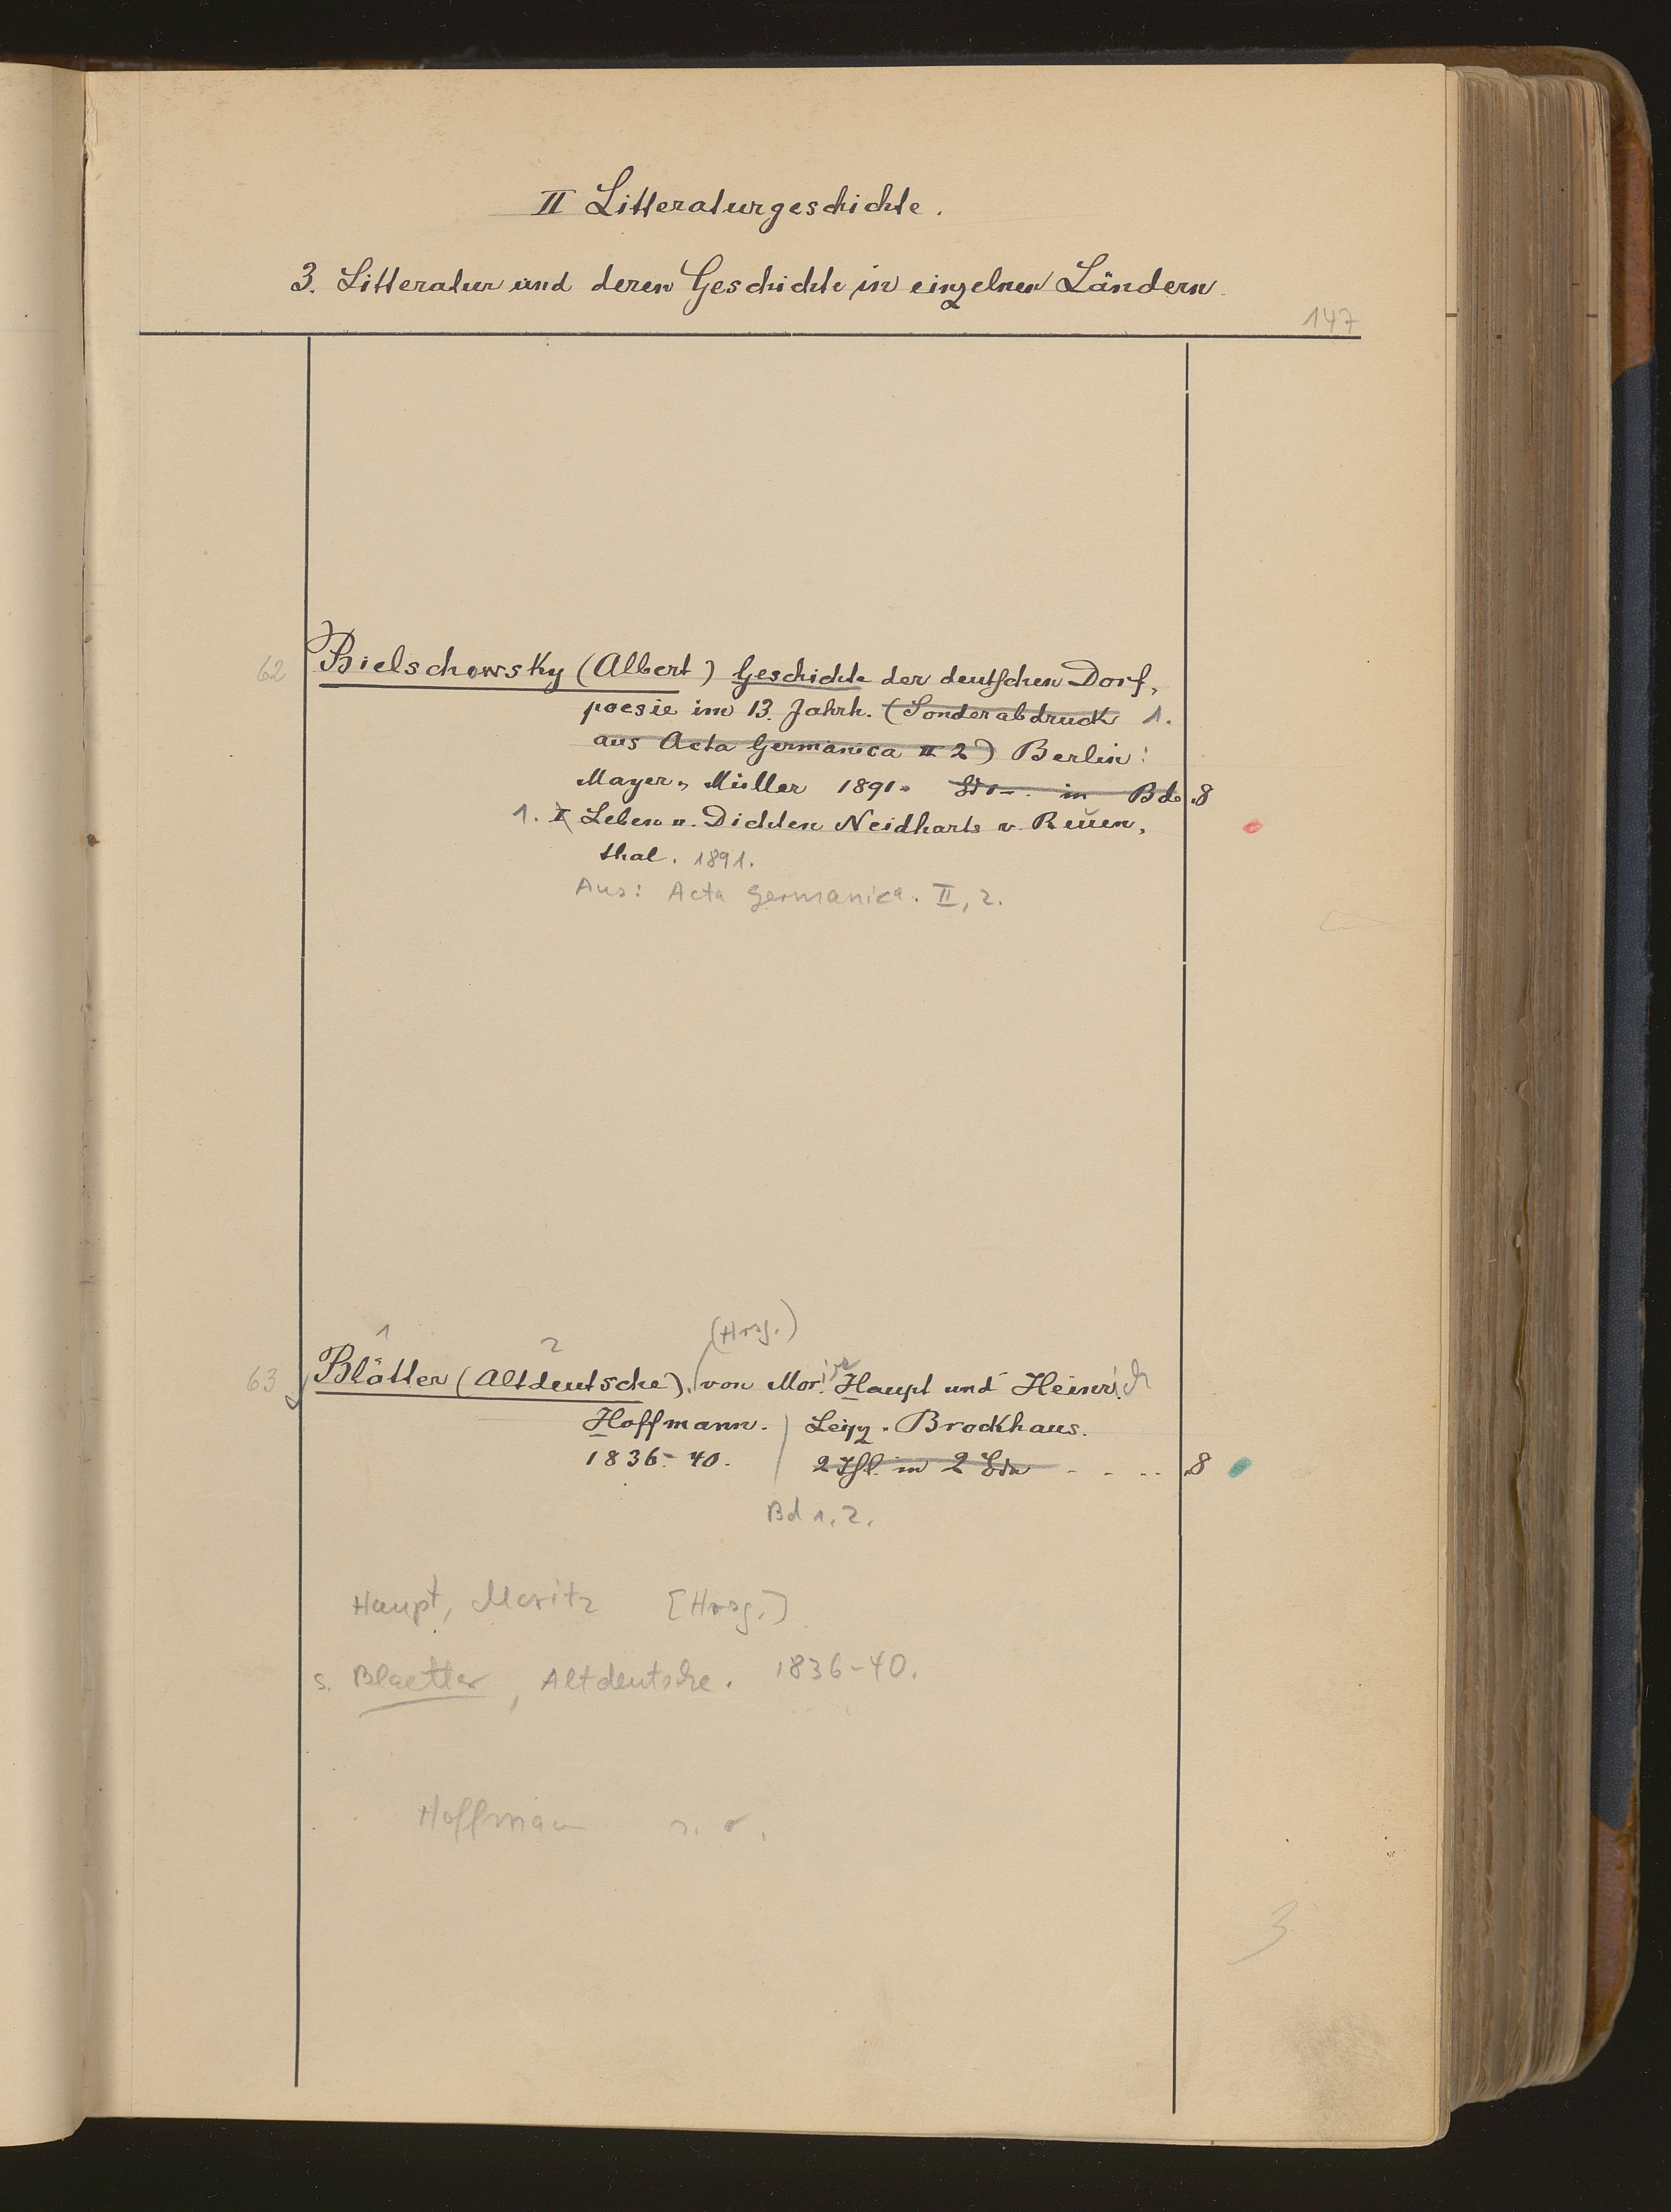 II Litteraturgeschichte.
3. Litteratur und deren Geschichte in einzelnen Ländern.
147
62 Bielschowsky (Albert) Geschichte der deutschen Dorf-
poesie im 13. Jahrh. (Sonderabdruck 1.
aus Acta Germanica II 2) Berlin:
Mayer u. Müller 1891. in Bd. 8
1. I Leben u. Dichten Neidharts v. Reuen-
thal. 1891.
Aus: Acta Germanica. II, 2.
1 2 (Hrsg.)
63 Blätter (Altdeutsche). von Moriz Haupt und Heinrich
Hoffmann. Leipz. Brockhaus.
1836-40. 2 Thl. in 2 Bdn 8
Bd 1. 2.
Haupt, Moritz [Hrsg.]
s. Blaetter, Altdeutsche. 1836-40.
Hoffmann
3